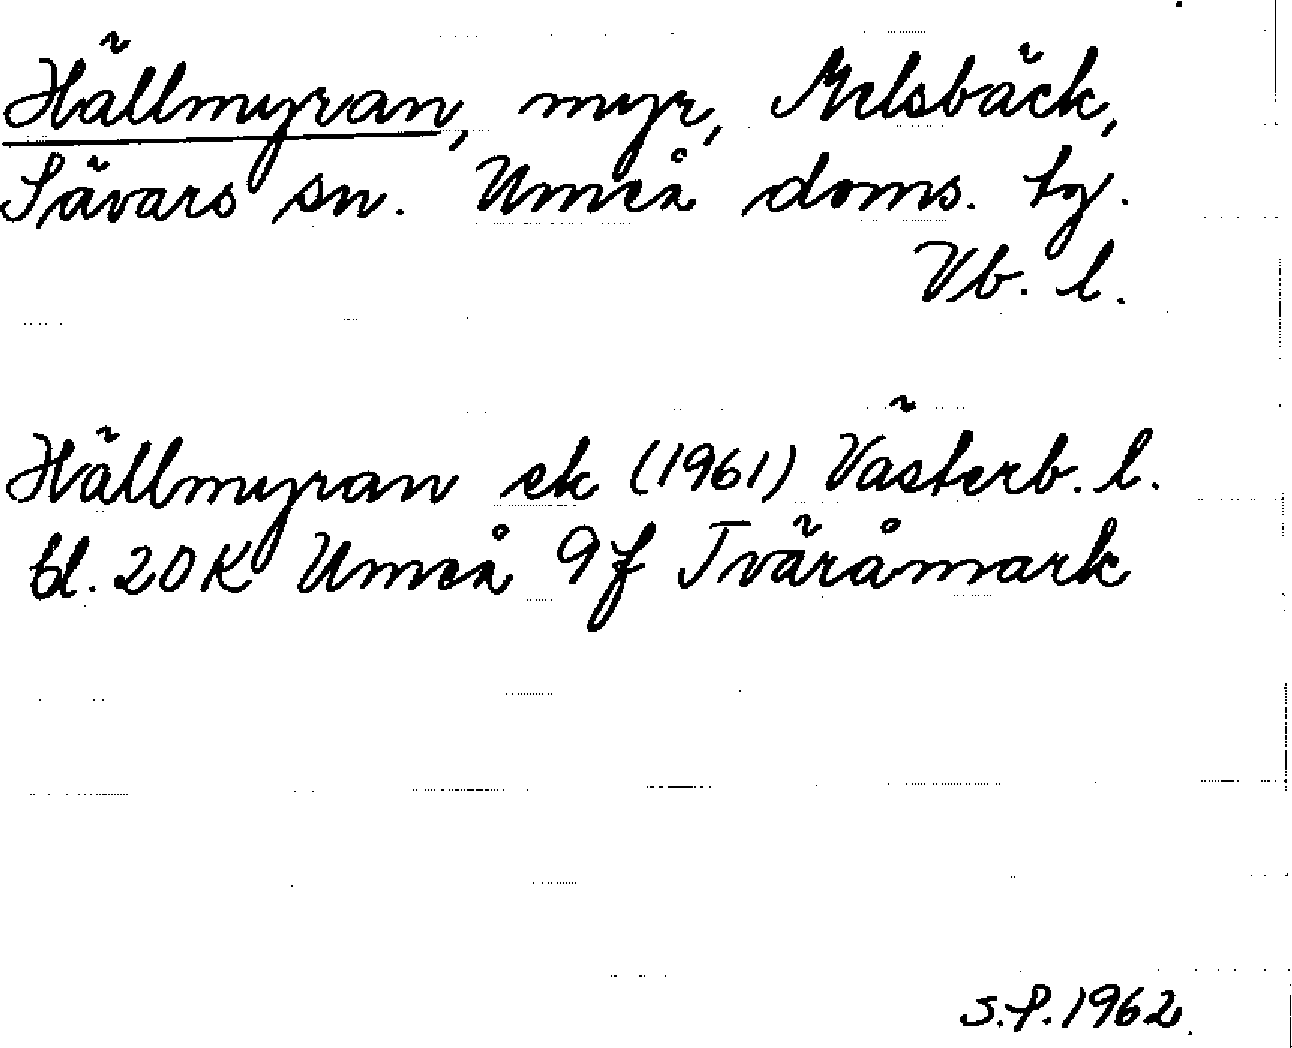 Hällmyran, myr, Melsbäck,
Sävars sn. Umeå doms. tg.
Vb. l.
Hällmyran ek (1961) Västerb. l.
bl. 20K Umeå 9f Tväråmark
S.P. 1962.